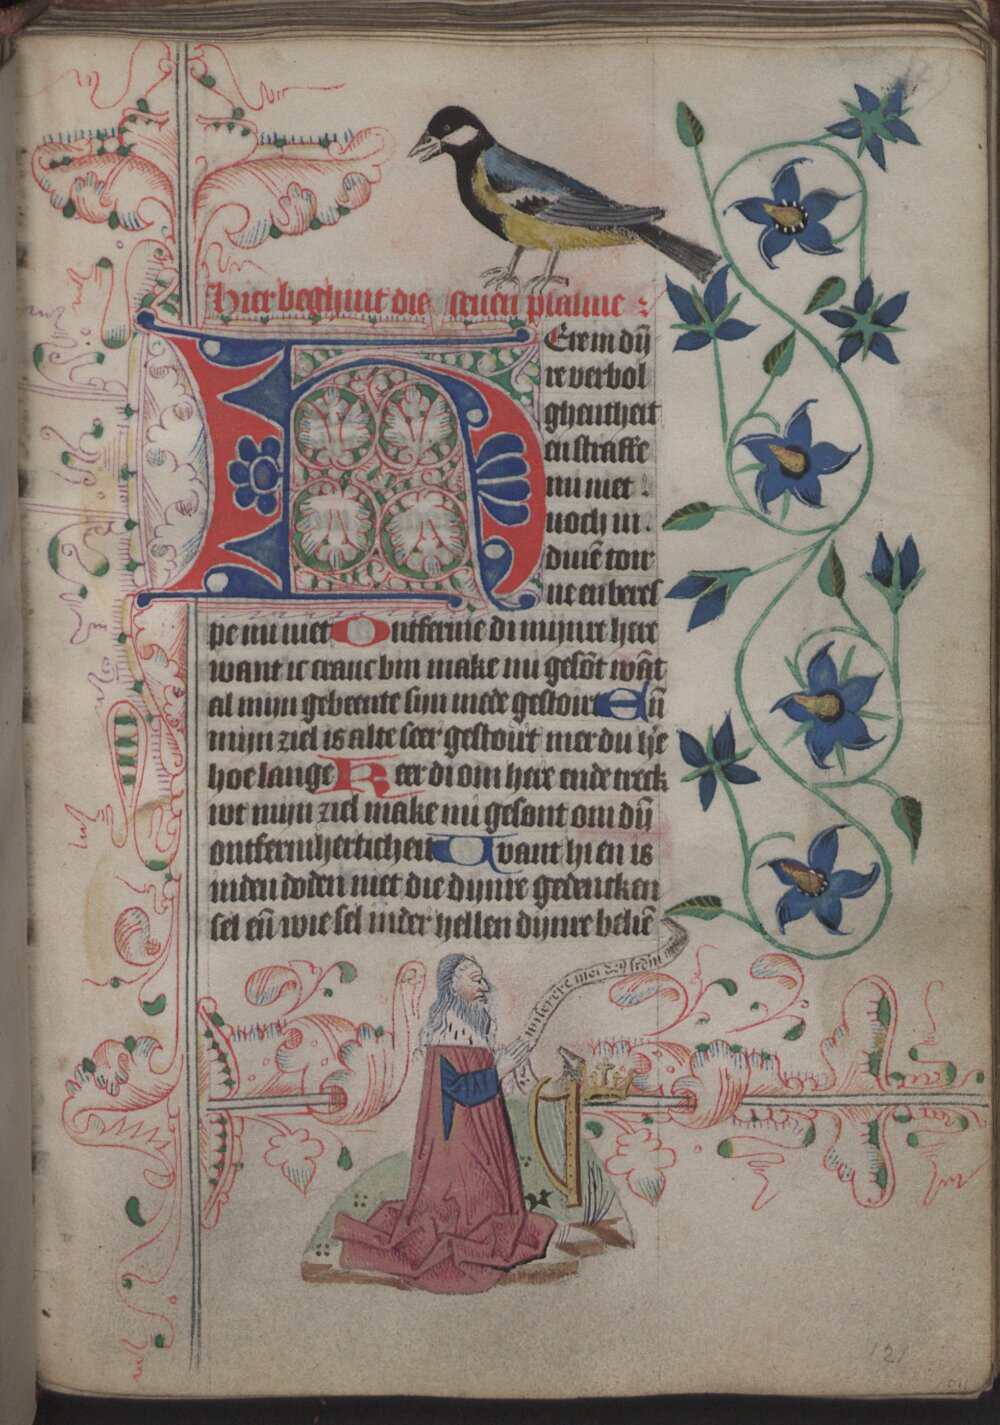 Hier beghint die seuen psalme :
HEre in dijn
re verbol
ghentheit
en straffe
mi niet :
noch in .
dinē torr
ne en beres
pe mi niet Ontferme di mijnre here
want ic cranc bin make mi gesōt wāt
al mijn gebeente sijn mede gestoirt Eñ
mijn ziel is alte seer gestout mer du h̄e
hoe lange Keer di om here ende treck
wt mijn ziel make mi gesont om dijn
ontfermherticheit Want hi en is
inden doden niet die dijnre gedencken
sel eñ wie sel inder hellen dijnre beliē
miserere mei deus secundum
121